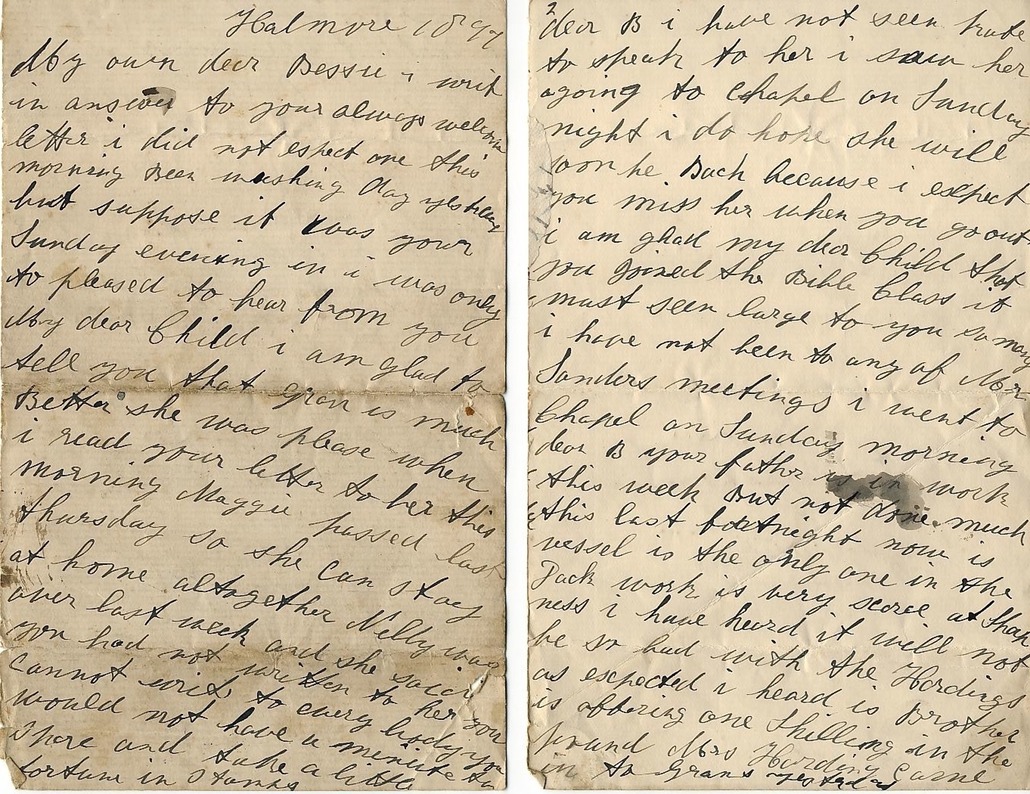 Halmore 1897
My own dear Bessie i writ
in answer to your always welcom
letter i did not espect one this
morning Been washing day yesterday
but suppose it was your
Sunday evening in i was only
to pleased to hear from you
My dear Child i am glad to
tell you that gran is much
Better she was please when
i read your letter to her this
morning Maggie passed last
thursday so she can stay
at home altogether Nelly was
over last week and she said
you had not written to her you
cannot writ to every body you
would not have a minute to
spare and take a little
fortune in stamps
2
dear B i have not seen
to speak to her i saw her
agoing to Chapel on Sunday
night i do hope she will
soon be Back because i eslpect
you miss her when you go out
i am glad my dear Child that
you joined the Bible Class it
must seen large to you so many
i have not been to any of Mr
Sanders meetings i went to
Chapel on Sunday morning
dear B your father is in work
this week But not done much
this last fortnight now is
vessel is the only one in the
Dock work is very scarce at Sharp
ness i have heard it will not
be so bad with the Hardings
as escpected i heard is Brother
is offering one Shilling in the
pound Mrs Harding Came
in to Grans yesterday